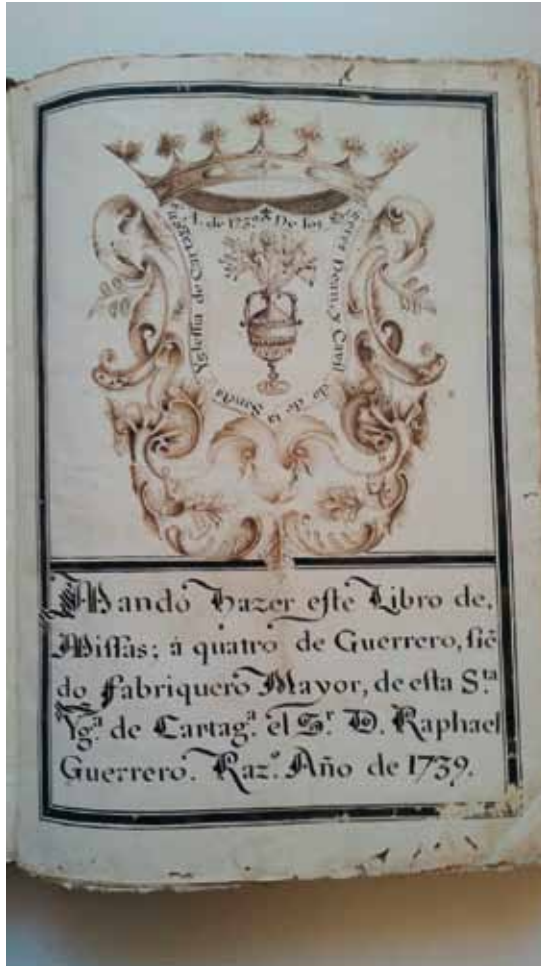 A. de 1739. De los Señores Dean, y Cavildo de la Santa Yglessia de Cartagena
Mandó hazer este Libro de,
Missas; á quatro de Guerrero, siẽ
do fabriquero Mayor, de esta S.ta
Yg.a de Cartag.a el S.r D. Raphael
Guerrero. Raz.o Año de 1739.